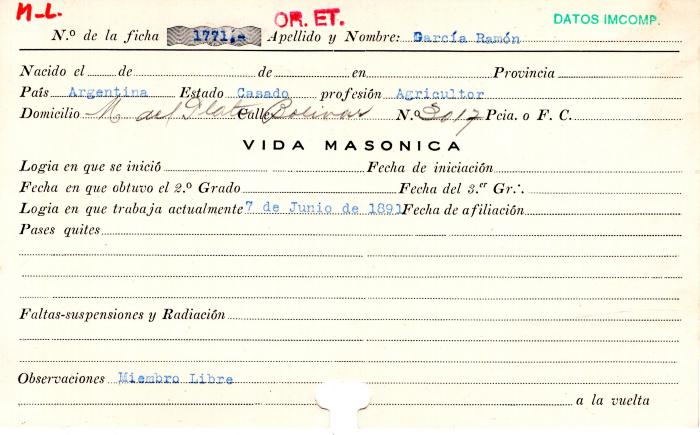 M-L.
OR. ET.
DATOS IMCOMP.
N.º de la ficha 1771.- Apellido y Nombre: García Ramón
Nacido el de de en Provincia
País Argentina Estado Casado profesión Agricultor
Domicilio M. del Plata Calle Bolivar N.º 3017 Pcia. o F. C.
VIDA MASONICA
Logia en que se inició Fecha de iniciación
Fecha en que obtuvo el 2.º Grado Fecha del 3.er Gr∴
Logia en que trabaja actualmente 7 de Junio de 1891 Fecha de afiliación
Pases quites
Faltas-suspensiones y Radiación
Observaciones Miembro Libre
a la vuelta